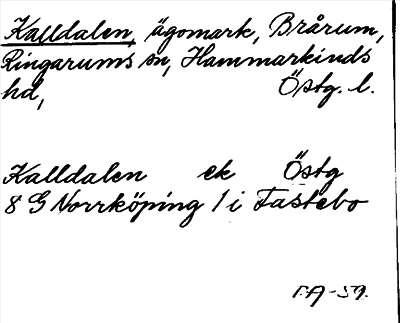 Kalldalen, ägomark, Brårum,
Ringarums sn, Hammarkinds
hd, Östg. l.
Kalldalen ek Östg
8 G Norrköping 1 i Fastebo
F.A-59.